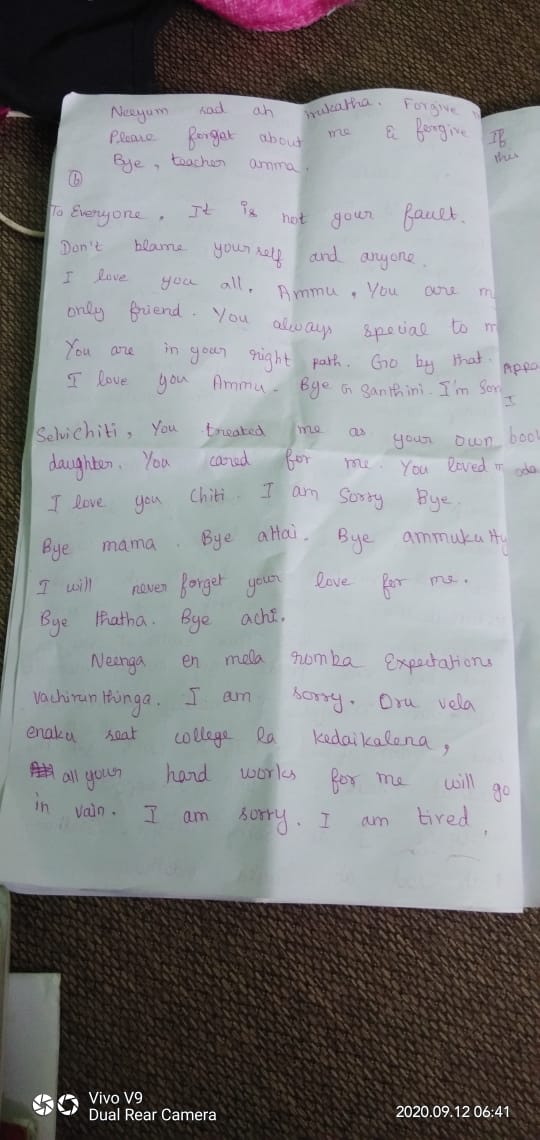 Neeyum sad ah irukatha. Forgive
Please forget about me & forgive
Bye, teacher amma.
6
To Everyone, It is not your fault.
Don't blame yourself and anyone.
I love you all. Ammu, You are m
only friend. You always special to m
You are in your right path. Go by that.
I love you Ammu. Bye G Santhini. I'm Sor
Selvichiti, You treated me as your own
daughter. You cared for me. You loved m
I love you Chiti. I am Sorry Bye.
Bye mama. Bye attai. Bye ammukutty
I will never forget your love for me.
Bye thatha. Bye achi.
Neenga en mela romba Expectations
vachirunthinga. I am sorry. Oru vela
enaku seat college la kedaikalena,
all your hard works for me will go
in vain. I am sorry. I am tired.
If
this
Appa
I
book
Vivo V9
Dual Rear Camera
2020.09.12 06:41